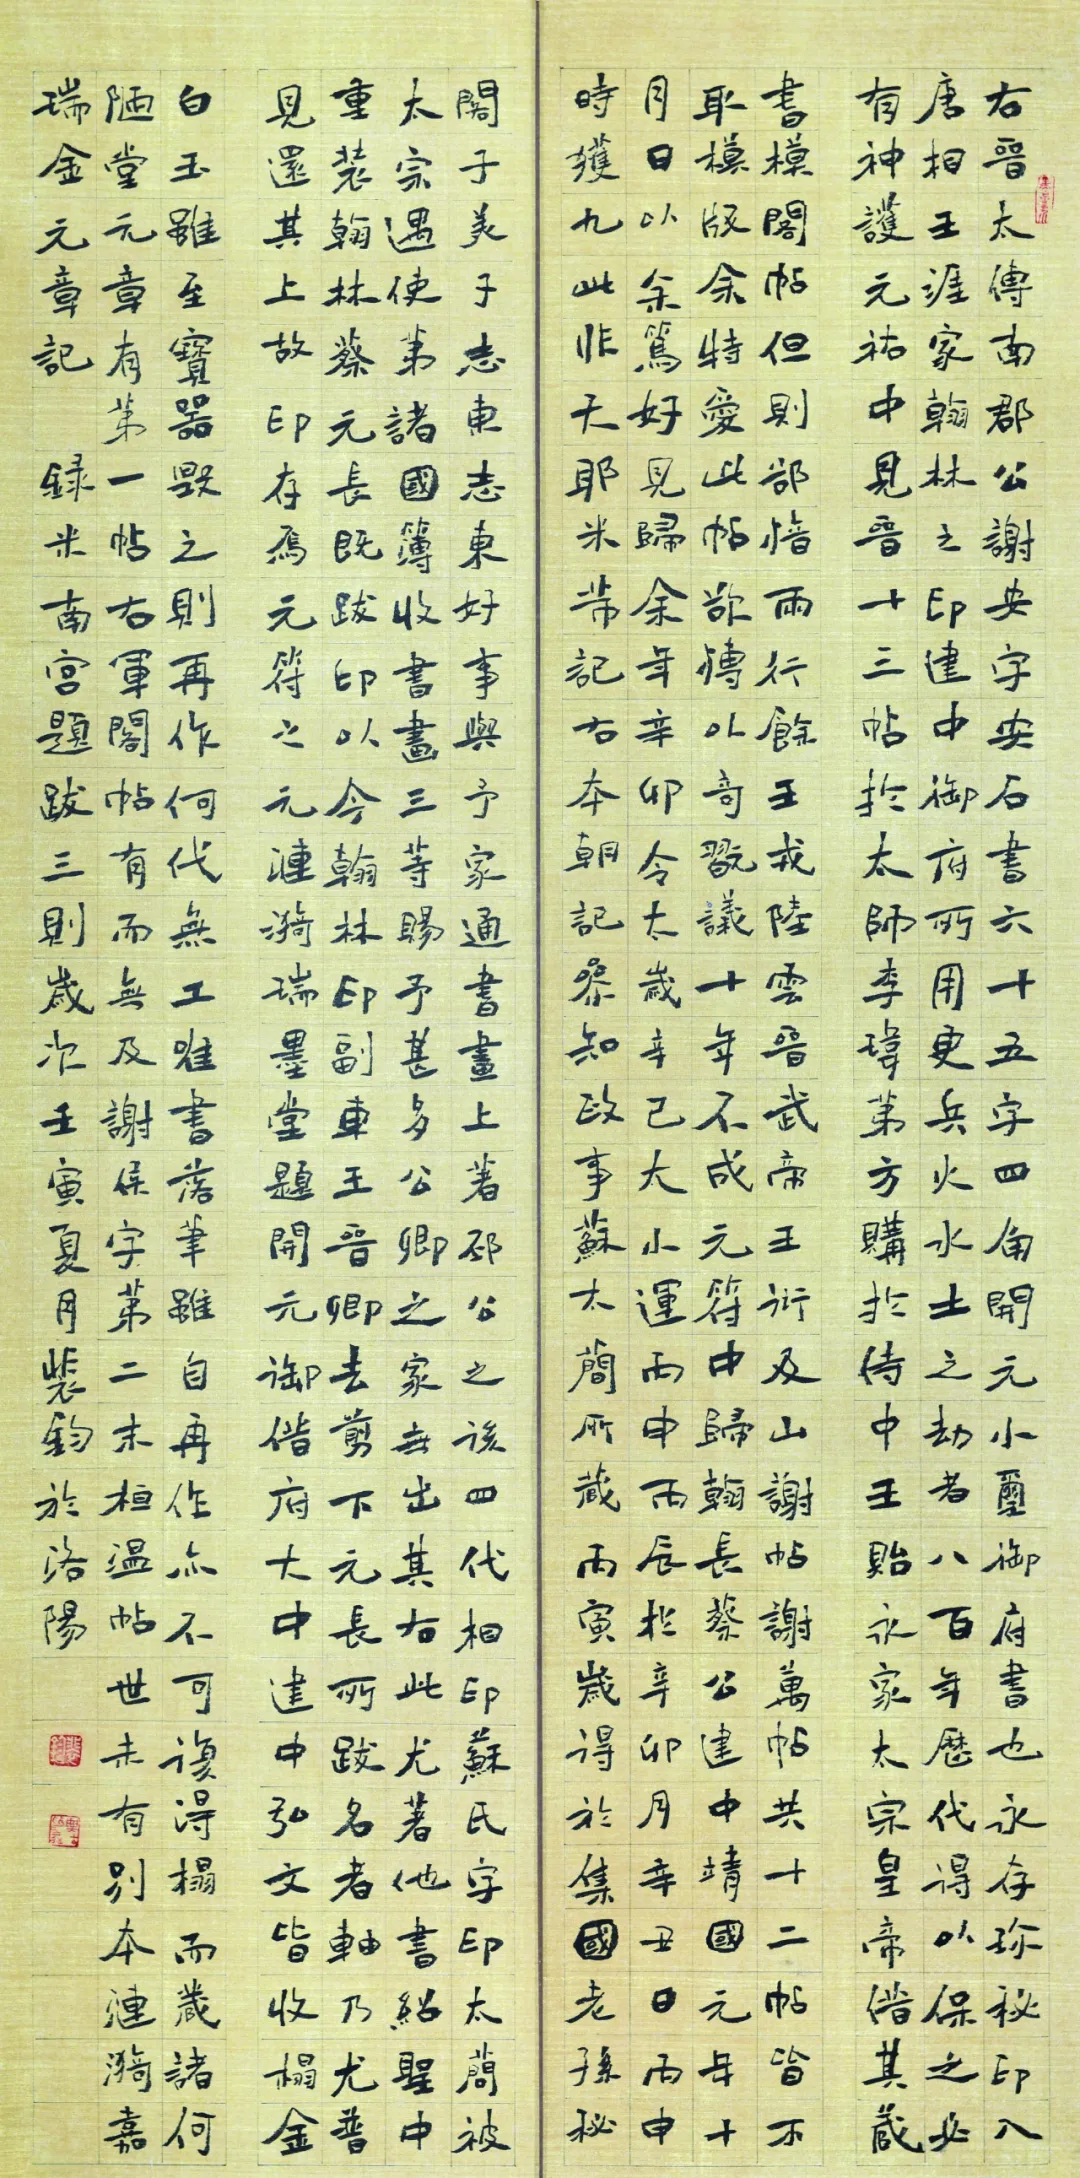 右晉太傅南郡公謝安字安石書六十五字四角開元小璽御府書也永存珍秘印入
唐相王涯家翰林之印建中御府所用更兵火水土之劫者八百年歷代得以保之必
有神護元祐中見晉十三帖於太師李瑋第方購於侍中王貽永家太宗皇帝借其藏
書模閣帖但則郗愔兩行餘王戎陸雲晉武帝王衍及山謝帖謝萬帖共十二帖皆不
取模版余特愛此帖欲博以奇翫議十年不成元符中歸翰長蔡公建中靖國元年十
月日以余篤好見歸余年辛卯令太歲辛己大小運丙申丙辰於辛卯月辛丑日丙申
時獲九此非天耶米芾記右本朝記參知政事蘇太簡所藏丙寅歲得於集國老孫秘
閣子美子志東志東好事與予家通書畫上著邳公之後四代相印蘇氏字印太簡被
太宗遇使第諸國簿收書畫三等賜予甚多公卿之家無出其右此尤著他書紹聖中
重裝翰林蔡元長既跋印以今翰林印副車王晉卿去剪下元長所跋名者軸乃尤普
見還其上故印存焉元符之元漣漪瑞墨堂題開元御借府大中建中弘文皆收榻金
白玉雖至寶器毀之則再作何代無工唯書落筆雖自再作亦不可復得榻而藏諸何
陋堂元章有第一帖右軍閣帖有而無及謝侯字第二末桓溫帖世未有別本漣漪嘉
瑞金元章記 録米南宮題跋三則歲次壬寅夏月裴鈞於洛陽